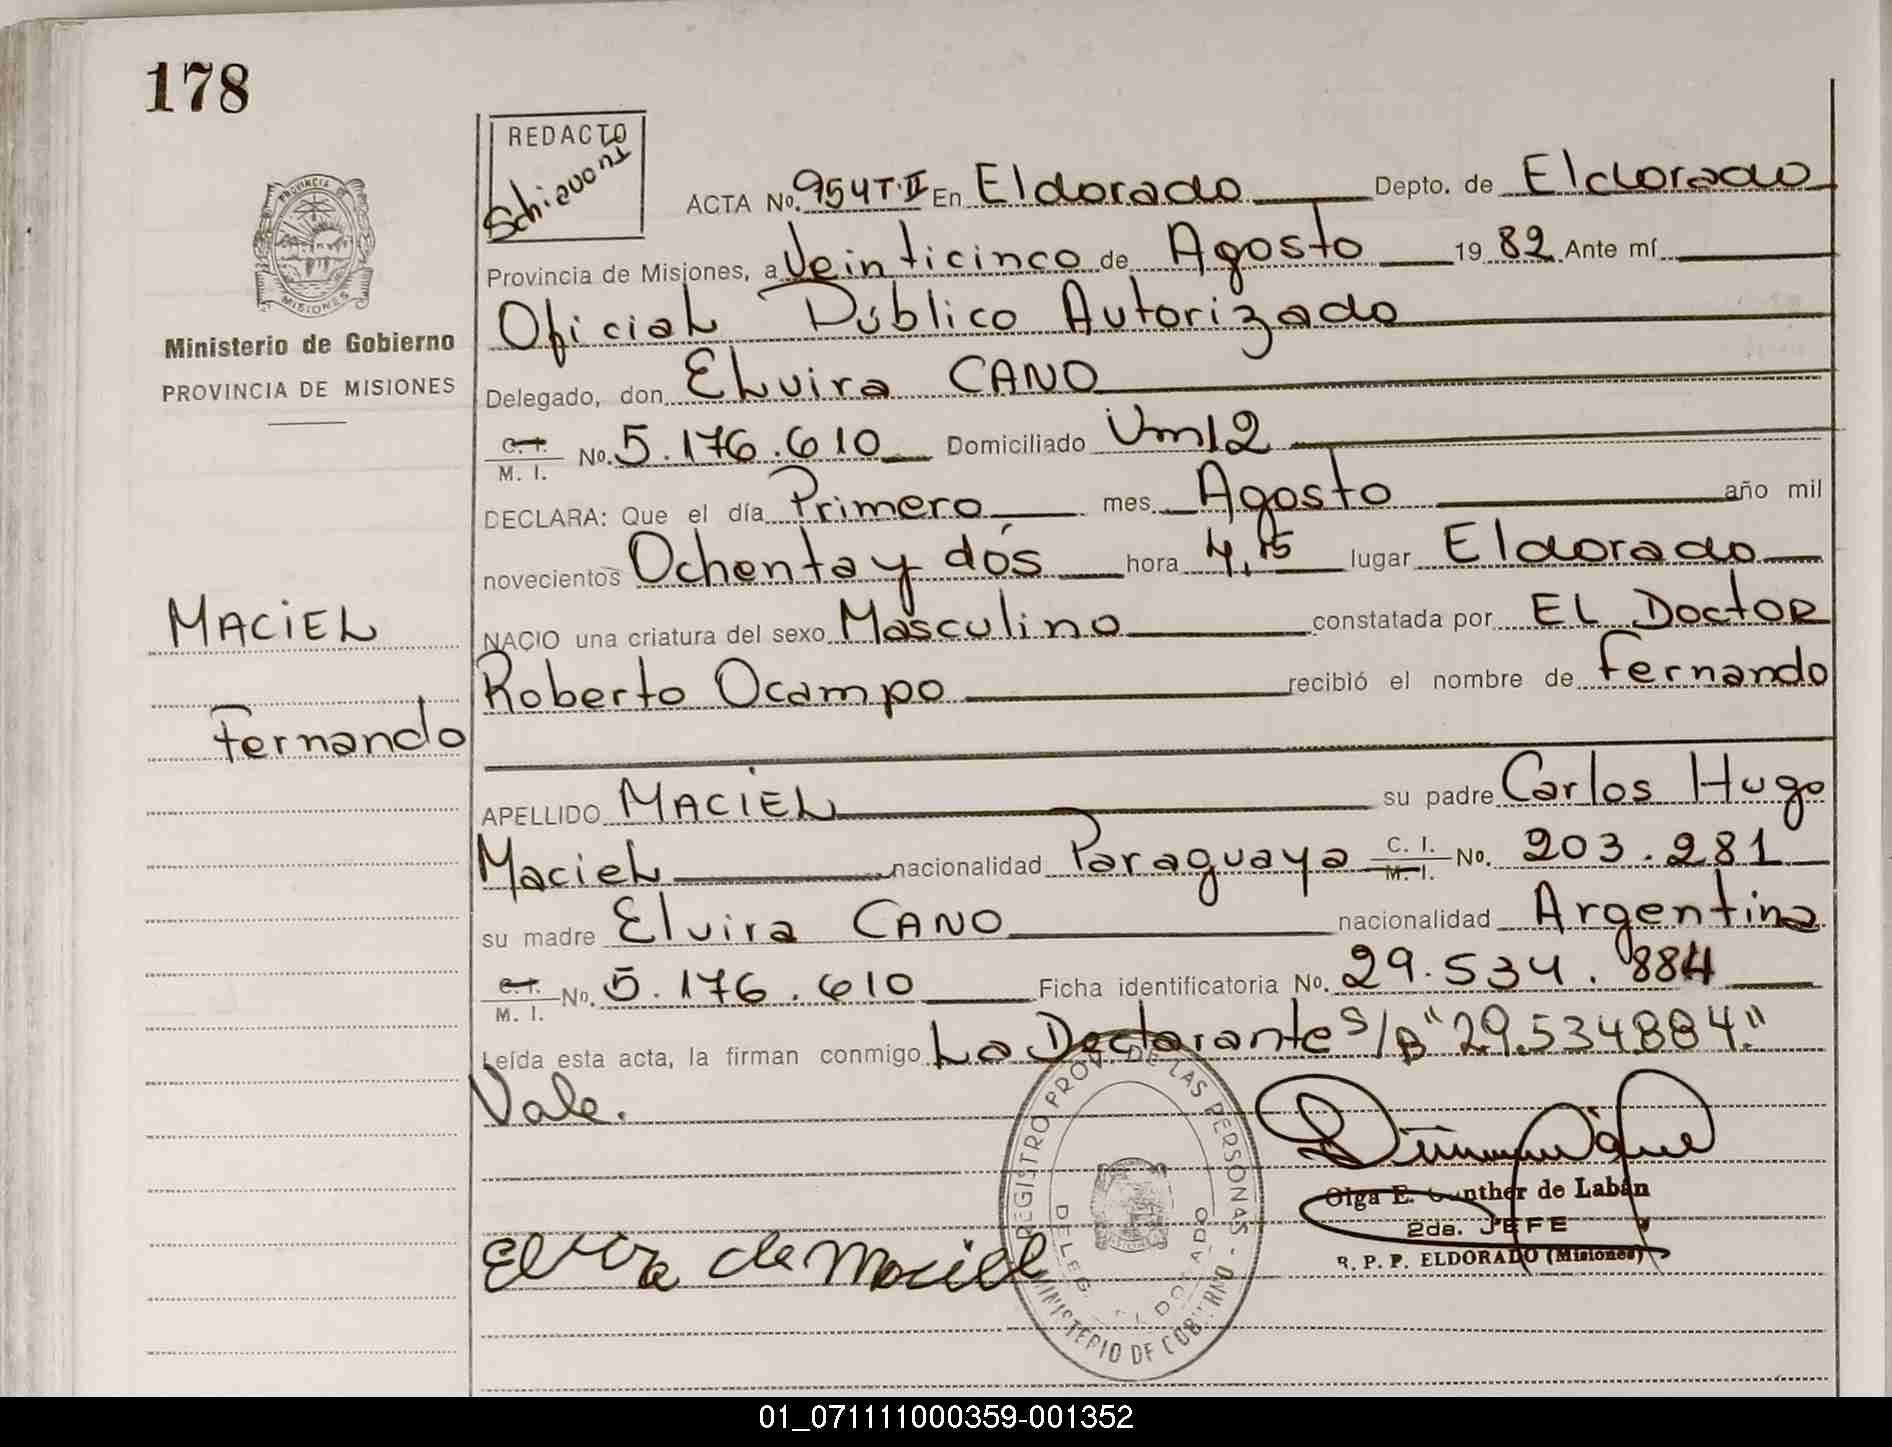 178
REDACTO
Schievoni
PROVINCIA DE
MISIONES
Ministerio de Gobierno
PROVINCIA DE MISIONES
ACTA No. 954 T·II En Eldorado Depto. de Eldorado
Provincia de Misiones, a Veinticinco de Agosto 19 82 Ante mí
Oficial Público Autorizado
Delegado, don Elvira CANO
C. I. / M. I. No. 5.176.610 Domiciliado Km 12
DECLARA: Que el día Primero mes Agosto año mil
novecientos Ochenta y dós hora 4,15 lugar Eldorado
MACIEL
NACIO una criatura del sexo Masculino constatada por EL DOCTOR
Roberto Ocampo recibió el nombre de Fernando
Fernando
APELLIDO MACIEL su padre Carlos Hugo
Maciel nacionalidad Paraguaya C. I. / M. I. No. 203.281
su madre Elvira CANO nacionalidad Argentina
C. I. / M. I. No. 5.176.610 Ficha identificatoria No. 29.534.884
Leída esta acta, la firman conmigo La Declarante S/B "29.534.884."
Vale.
REGISTRO PROV. DE LAS PERSONAS - MINISTERIO DE GOBIERNO
DELEG. ELDORADO
Olga E. Gunther de Labán
2da. JEFE
R. P. P. ELDORADO (Misiones)
Elvira de Maciel
01_071111000359-001352